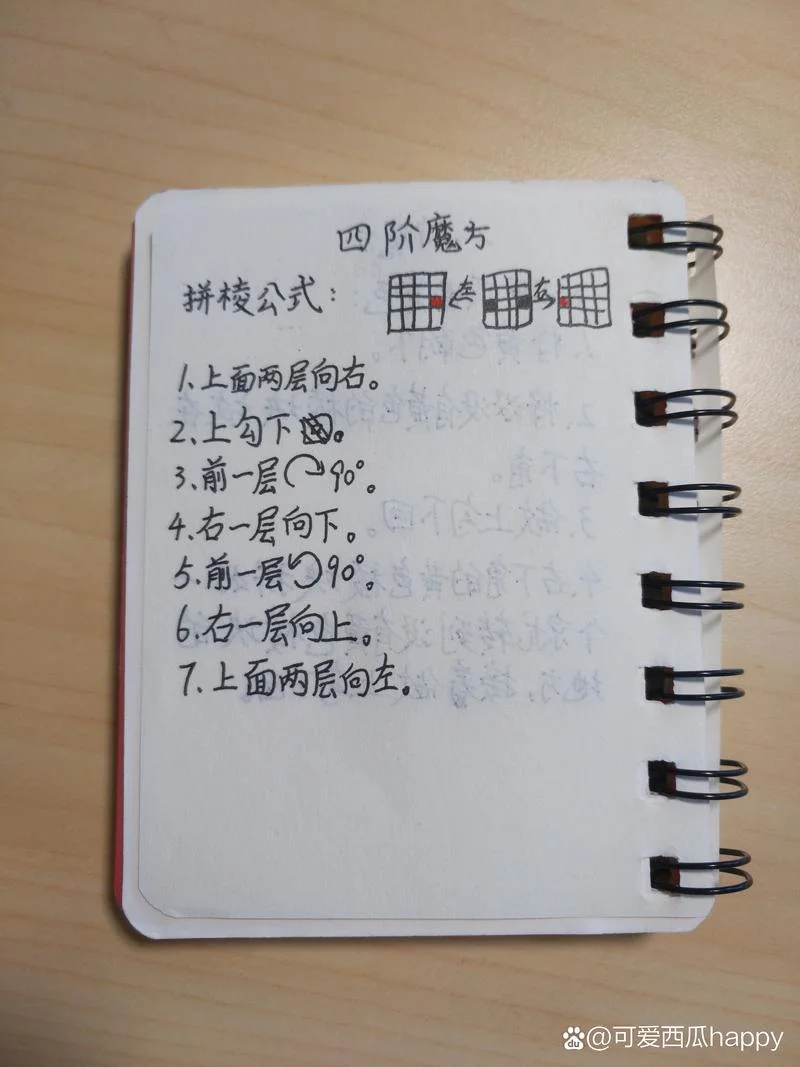 四阶魔方
拼棱公式： 左 右
1.上面两层向右。
2.上勾下回。
3.前一层90°。
4.右一层向下。
5.前一层90°。
6.右一层向上。
7.上面两层向左。
du @可爱西瓜happy